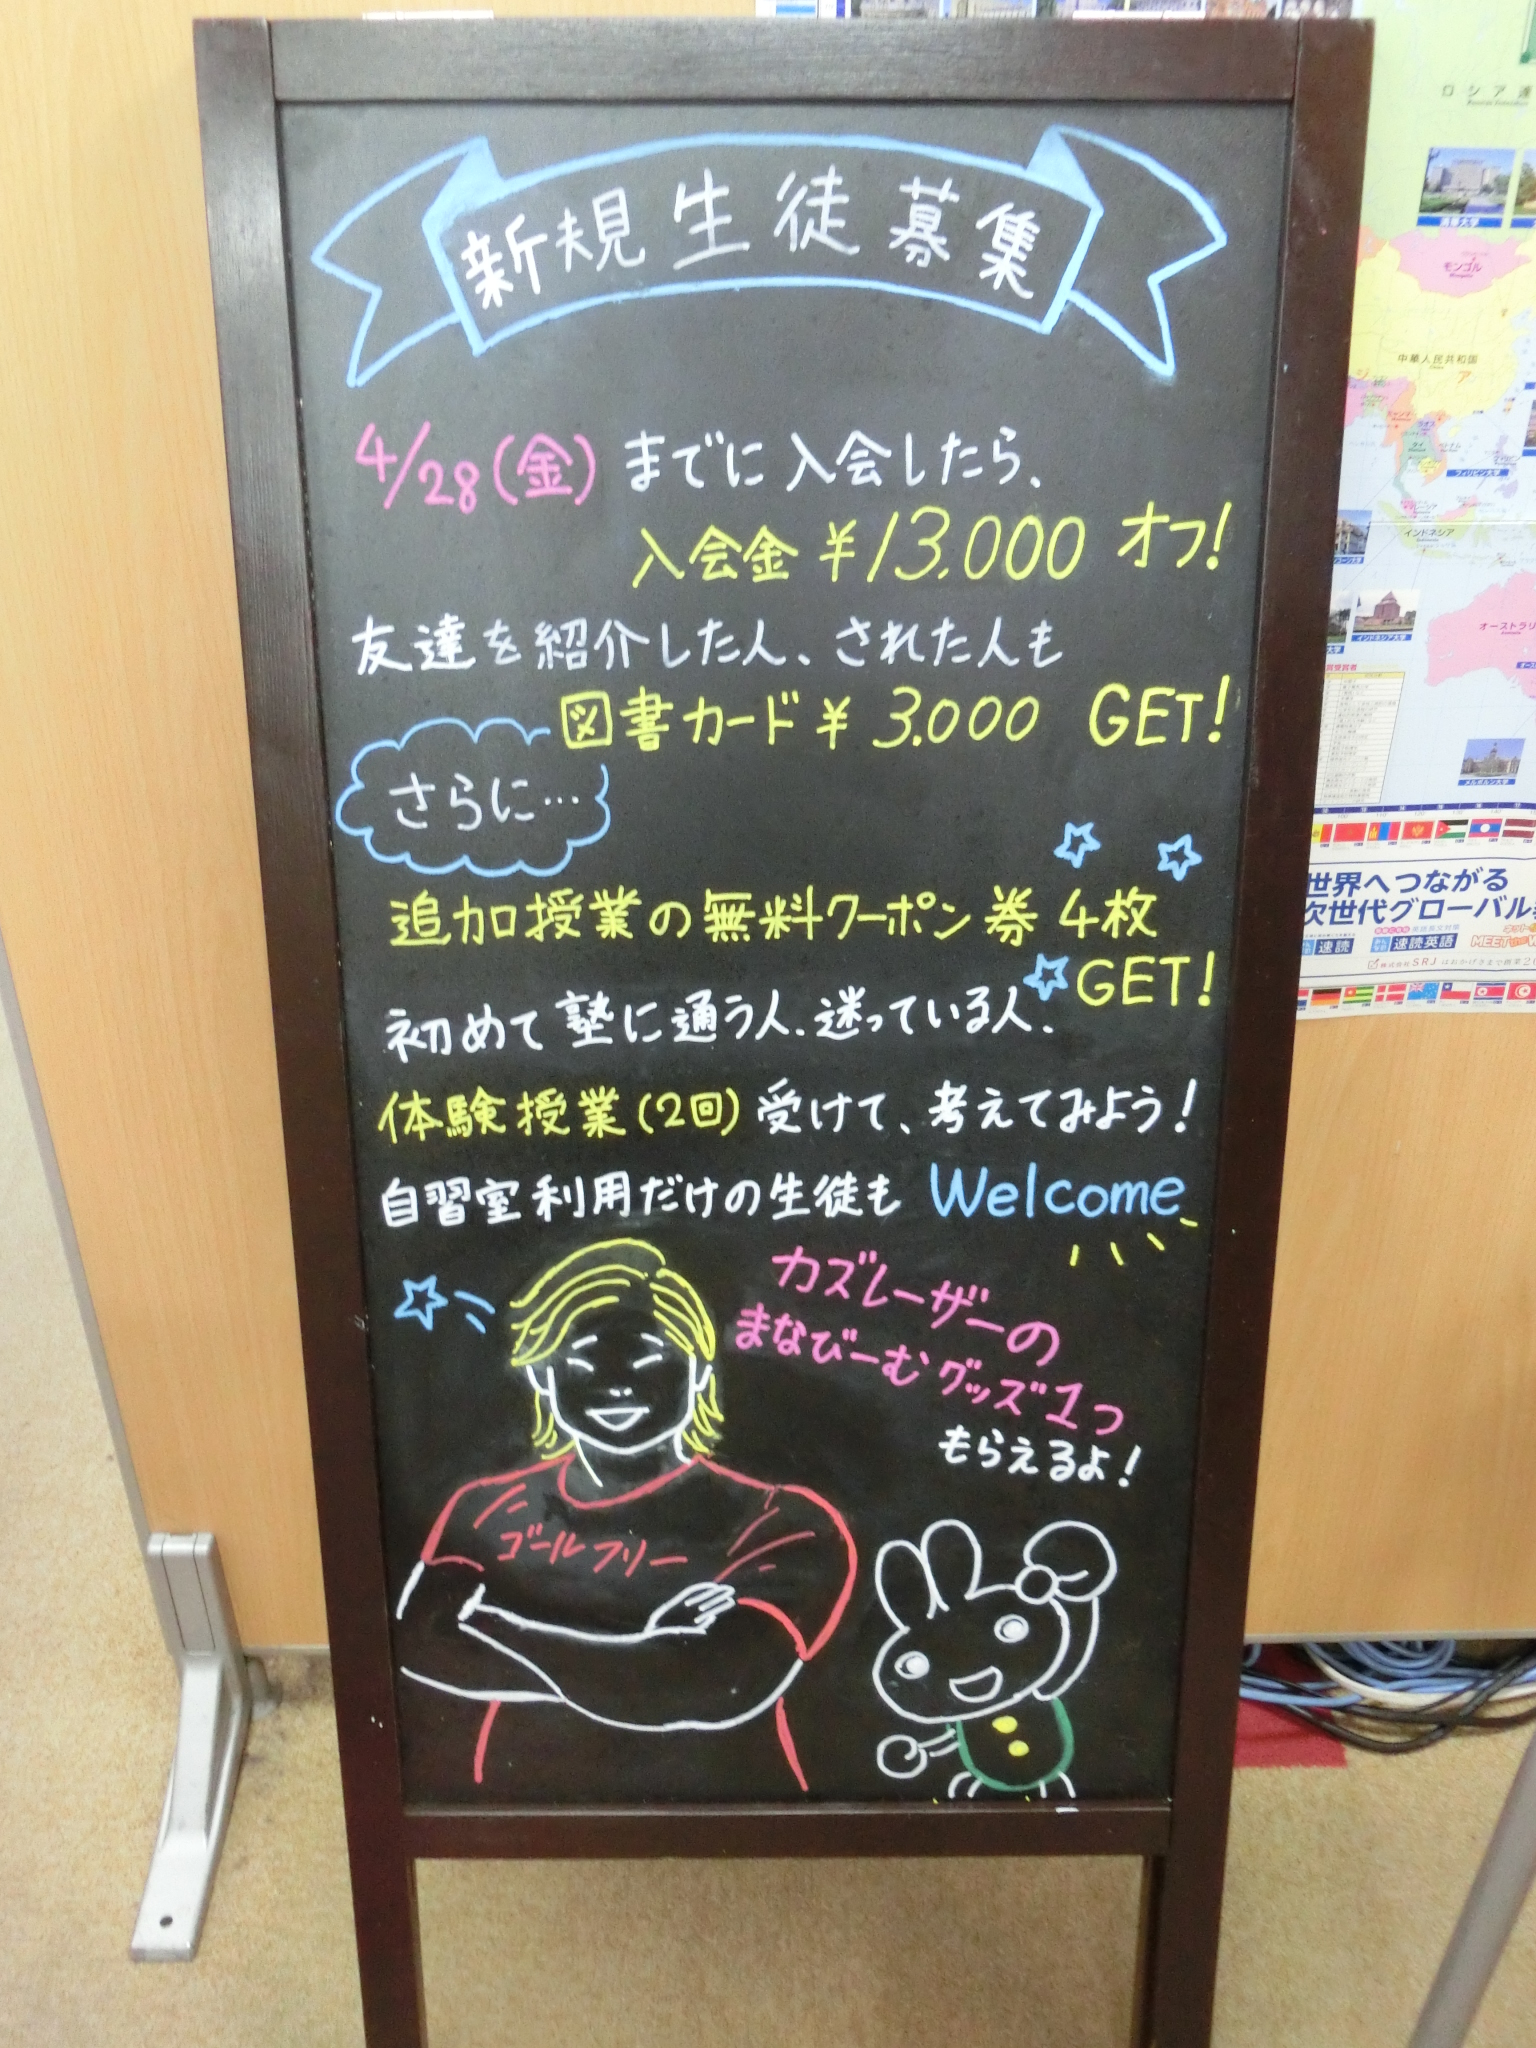 新規生徒募集
4/28(金)までに入会したら、
入会金¥13.000 オフ!
友達を紹介した人、された人も
図書カード¥3.000 GET!
さらに…
追加授業の無料クーポン券4枚
GET!
初めて塾に通う人.迷っている人.
体験授業(2回)受けて、考えてみよう!
自習室利用だけの生徒も Welcome
カズレーザーの
まなびーむグッズ1つ
もらえるよ!
ゴールフリー
モンゴル
中華人民共和国
インドネシア
フィリピン大学
インドネシア大学
メルボルン大学
世界へつながる
次世代グローバル
速読
速読英語
株式会社SRJ